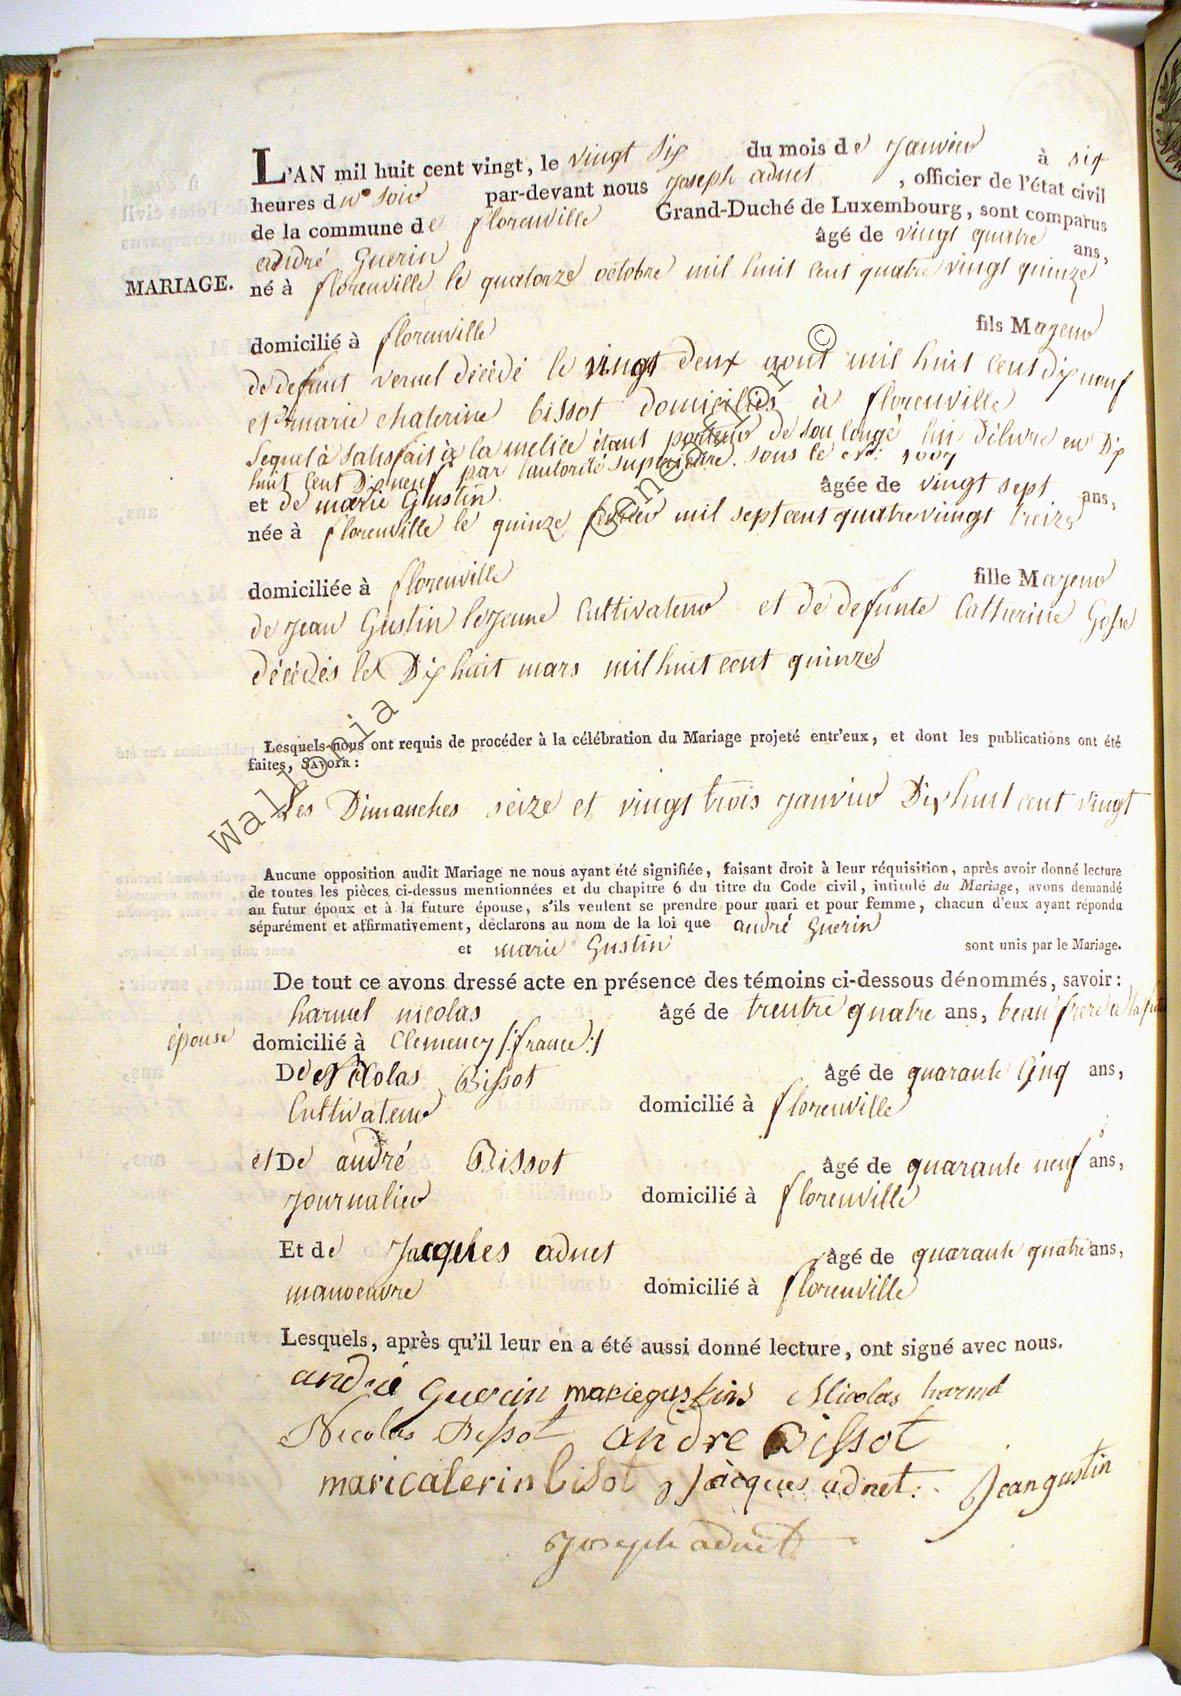 L'AN mil huit cent vingt, le vingt Six du mois de Janvier à six
heures du soir par-devant nous Joseph adnet, officier de l'état civil
de la commune de florenville Grand-Duché de Luxembourg, sont comparus
andré Guerin âgé de vingt quatre ans,
MARIAGE. né à florenville le quatorze octobre mil huit cent quatre vingt quinze
domicilié à florenville fils Majeur
de defunt décédé le vingt deux aout mil huit cent dix neuf
et marie chaterine bissot domiciliés à florenville
lequel à satisfait à la melice étant porteur de son congé lui délivré en Dix
huit cent Dix neuf par l'autorité superieure. sous le
et de marie Gustin âgée de vingt sept ans,
née à florenville le quinze fevrier mil sept cent quatre vingt treize
domiciliée à florenville fille Majeur
de Jean Gustin le Jeune Cultivateur et de defunte Catherine
décédés le Dix huit mars mil huit cent quinze
Lesquels nous ont requis de procéder à la célébration du Mariage projeté entr'eux, et dont les publications ont été
faites, SAVOIR :
Les Dimanches seize et vingt trois Janvier Dix huit cent vingt
Aucune opposition audit Mariage ne nous ayant été signifiée, faisant droit à leur réquisition, après avoir donné lecture
de toutes les pièces ci-dessus mentionnées et du chapitre 6 du titre du Code civil, intitulé du Mariage, avons demandé
au futur époux et à la future épouse, s'ils veulent se prendre pour mari et pour femme, chacun d'eux ayant répondu
séparément et affirmativement, déclarons au nom de la loi que andré Guerin
et marie Gustin sont unis par le Mariage.
De tout ce avons dressé acte en présence des témoins ci-dessous dénommés, savoir :
harmel nicolas âgé de trentre quatre ans, beau frere de la
épouse domicilié à Clemency /: france :/
De Nicolas Bissot âgé de quarante Cinq ans,
Cultivateur domicilié à florenville
et De andré Bissot âgé de quarante neuf ans,
Journalier domicilié à florenville
Et de Jacques adnet âgé de quarante quatre ans,
manoeuvre domicilié à florenville
Lesquels, après qu'il leur en a été aussi donné lecture, ont signé avec nous.
andré Guerin marie gustin Nicolas harmel
Nicolas Bissot andre Bissot
maricaterin bisot Jacques adnet. Jean gustin
Joseph adnet
Wallonia Genealor ©